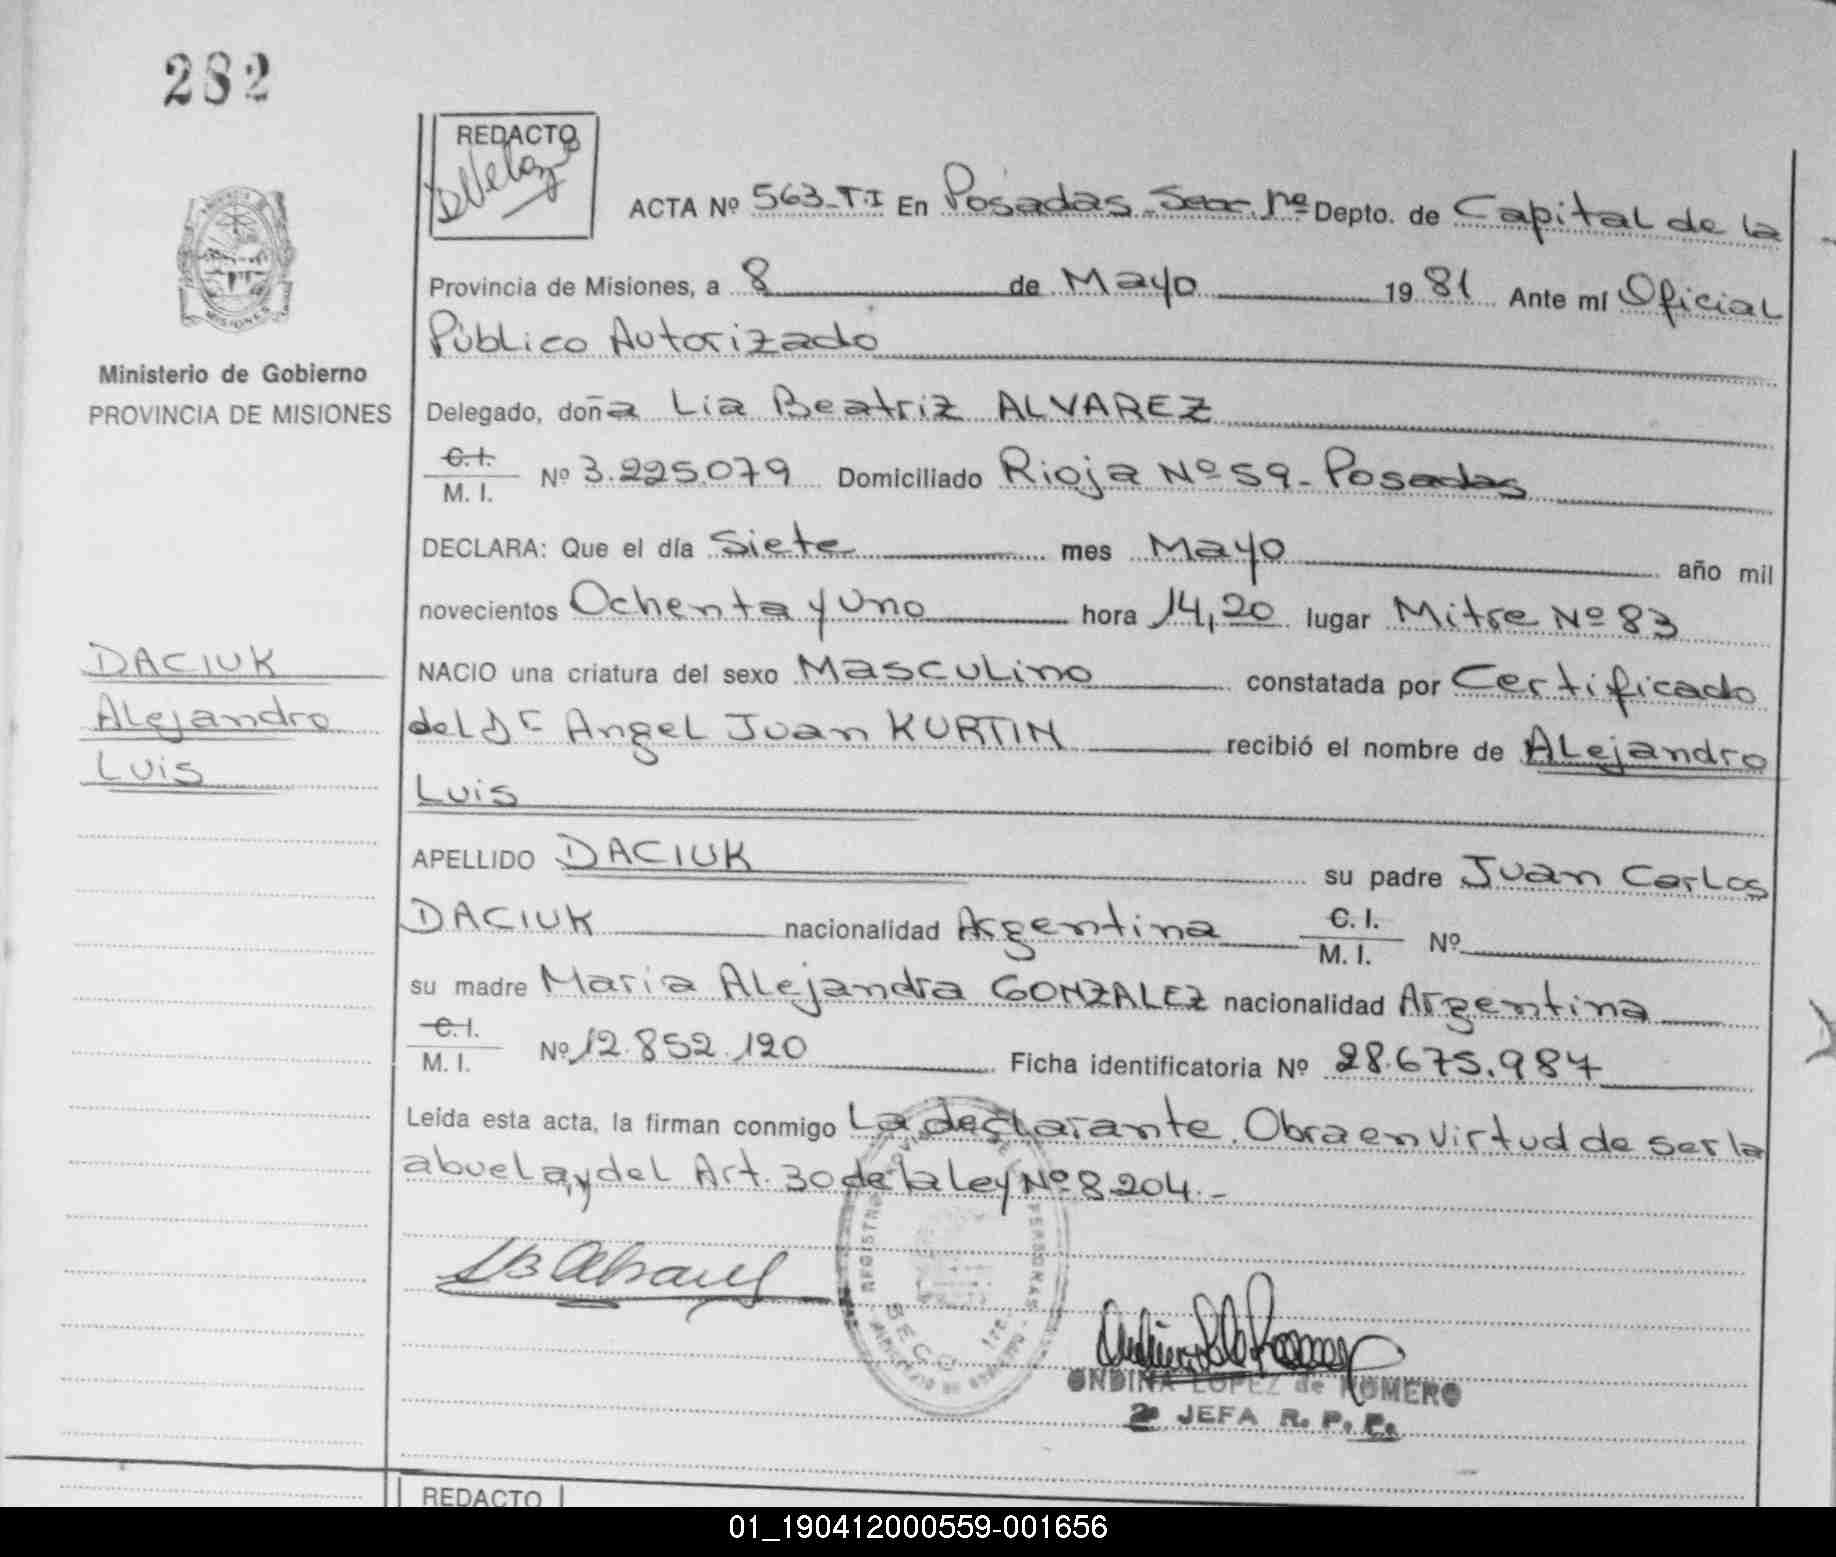 282
REDACTO
ACTA Nº 563-T.I En Posadas-Secc. 1ª Depto. de Capital de la
Provincia de Misiones, a 8 de Mayo 1981 Ante mí Oficial
Público Autorizado
Ministerio de Gobierno
PROVINCIA DE MISIONES
Delegado, doña Lia Beatriz ALVAREZ
C.I.
M. I. Nº 3.225.079 Domiciliado Rioja Nº 59-Posadas
DECLARA: Que el día Siete mes Mayo año mil
novecientos Ochenta y Uno hora 14,20 lugar Mitre Nº 83
DACIUK
Alejandro
Luis
NACIO una criatura del sexo Masculino constatada por Certificado
del Dr Angel Juan KURTIN recibió el nombre de Alejandro
Luis
APELLIDO DACIUK su padre Juan Carlos
DACIUK nacionalidad Argentina C. I.
M. I. Nº
su madre Maria Alejandra GONZALEZ nacionalidad Argentina
C.I.
M. I. Nº 12.852.120 Ficha identificatoria Nº 28.675.987
Leída esta acta, la firman conmigo La declarante. Obra en virtud de ser la
abuela y del Art. 30 de la ley Nº 8204.-
ONDINA LOPEZ de ROMERO
2ª JEFA R. P. P.
REDACTO
01_190412000559-001656